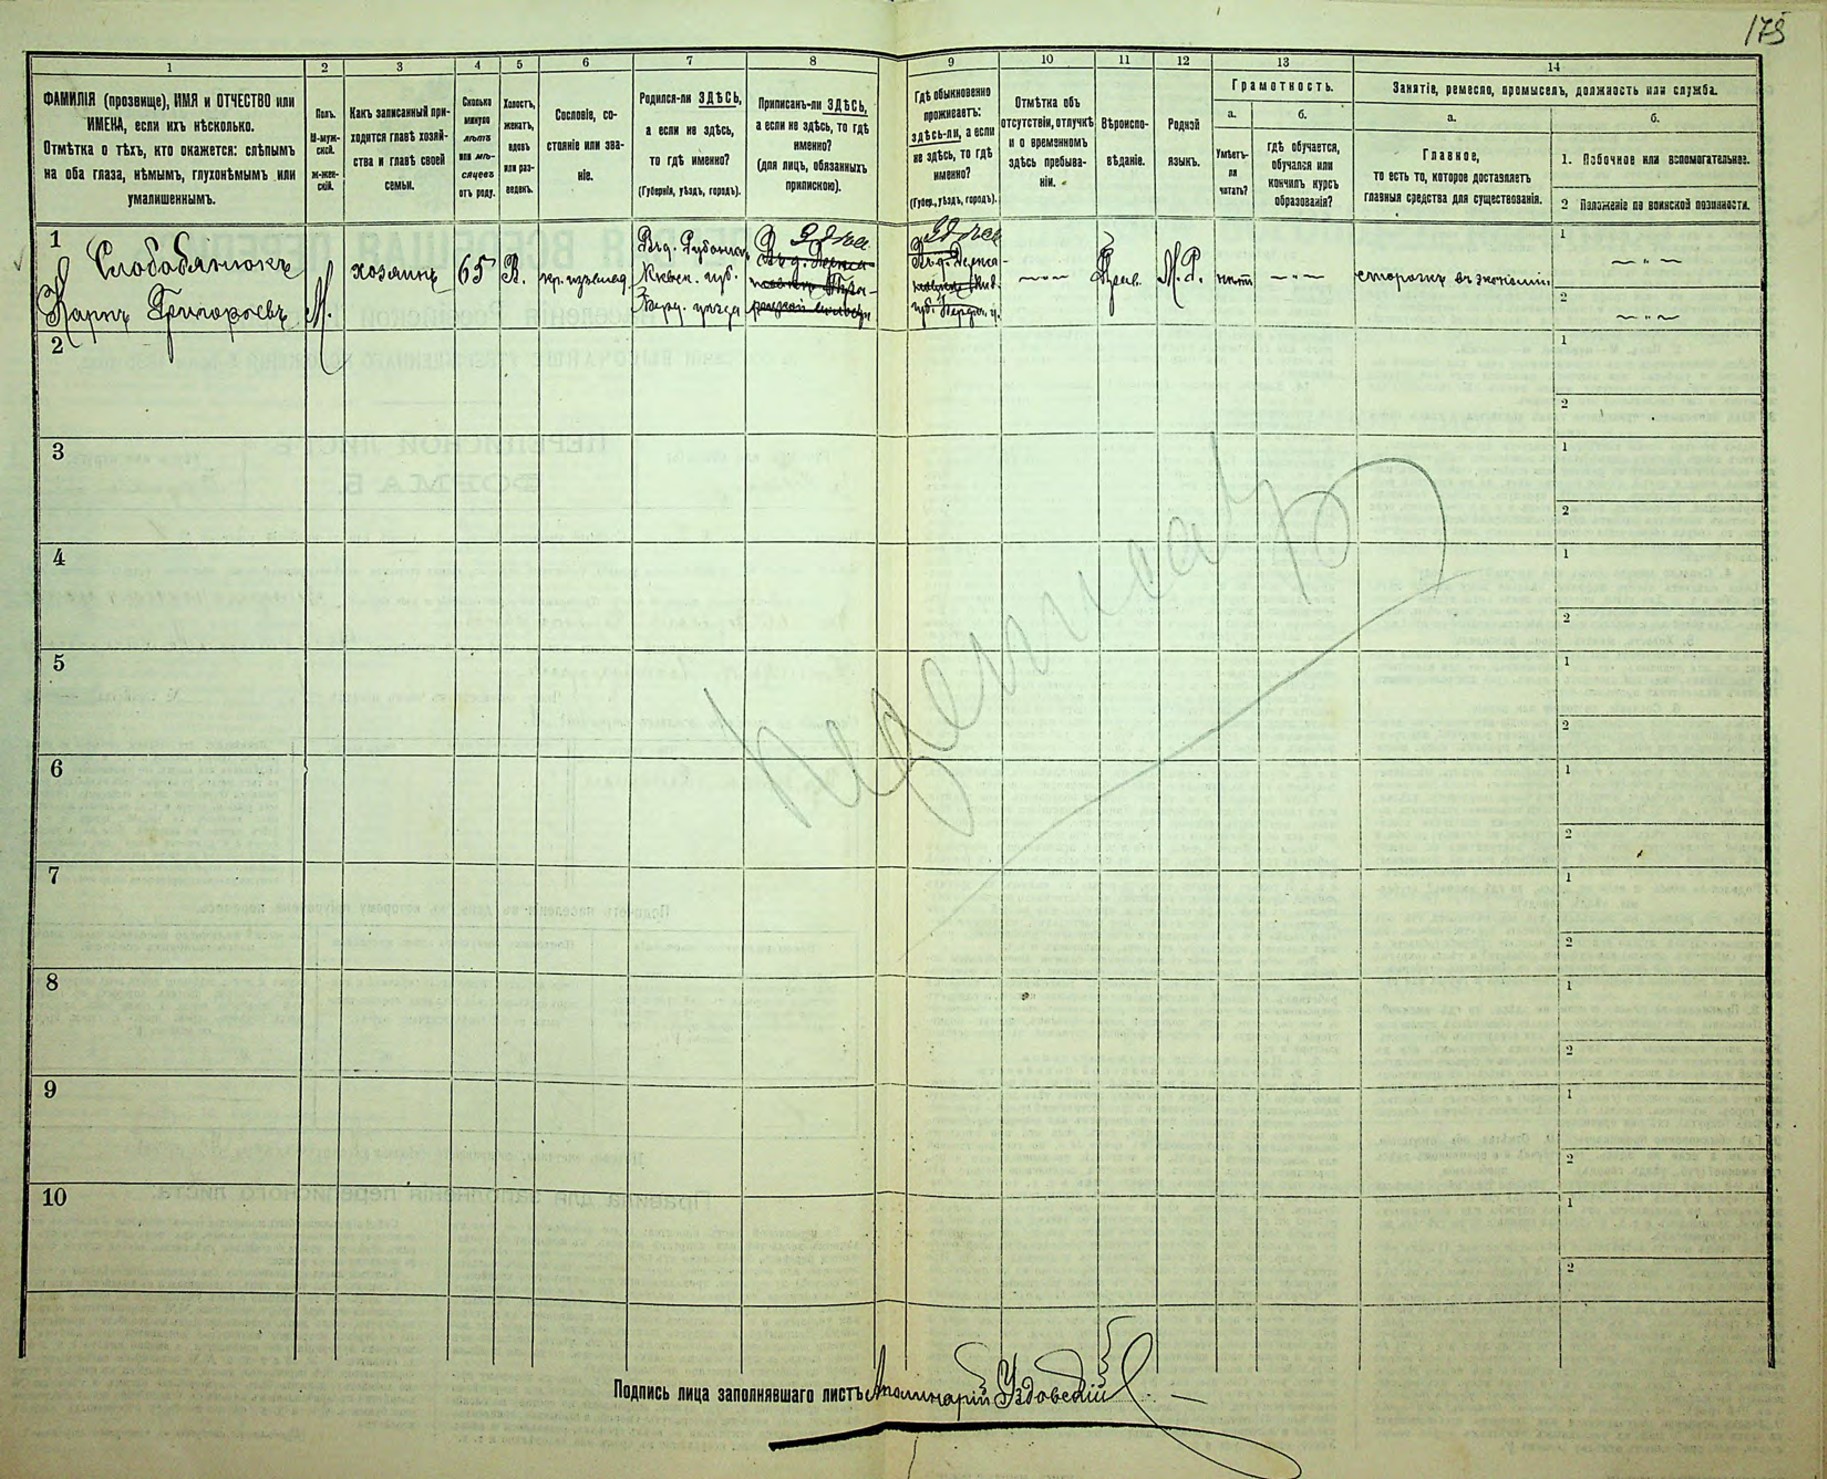 1
2
3
4
5
6
7
8
9
10
11
12
13
14
ФАМИЛІЯ (прозвище), ИМЯ и ОТЧЕСТВО или
ИМЕНА, если ихъ нѣсколько.
Отмѣтка о тѣхъ, кто окажется: слѣпымъ
на оба глаза, нѣмымъ, глухонѣмымъ или
умалишеннымъ.
Полъ.
М-муж-
ской.
Ж-жен-
скій.
Какъ записанный при-
ходится главѣ хозяй-
ства и главѣ своей
семьи.
Сколько
минуло
лѣтъ
или мѣ-
сяцевъ
отъ роду.
Холостъ,
женатъ,
вдовъ
или раз-
веденъ.
Сословіе, со-
стояніе или зва-
ніе.
Родился-ли ЗДѢСЬ,
а если не здѣсь,
то гдѣ именно?
(Губернія, уѣздъ, городъ).
Приписанъ-ли ЗДѢСЬ,
а если не здѣсь, то гдѣ
именно?
(для лицъ, обязанныхъ
припискою).
Гдѣ обыкновенно
проживаетъ:
здѣсь-ли, а если
не здѣсь, то гдѣ
именно?
(Губер., уѣздъ, городъ).
Отмѣтка объ
отсутствіи, отлучкѣ
и о временномъ
здѣсь пребыва-
ніи.
Вѣроиспо-
вѣданіе.
Родной
языкъ.
Грамотность.
а.
Умѣетъ-
ли
читать?
б.
гдѣ обучается,
обучался или
кончилъ курсъ
образованія?
Занятіе, ремесло, промыселъ, должность или служба.
а.
Главное,
то есть то, которое доставляетъ
главныя средства для существованія.
б.
1. Побочное или вспомогательное.
2 Положеніе по воинской повинности.
1
Слободянюкъ
Карпъ Григорьевъ
М.
хозяинъ
65
В.
Кіевск. губ.
Берд. уѣзда
Здѣсь
Здѣсь
— " —
М. Р.
нѣтъ
— " —
сторожъ въ экономіи
1
— " —
2
— " —
2
1
2
3
1
2
4
1
2
5
1
2
6
1
2
7
1
2
8
1
2
9
1
2
10
1
2
Подпись лица заполнявшаго листъ Аполинарій Уздовскій